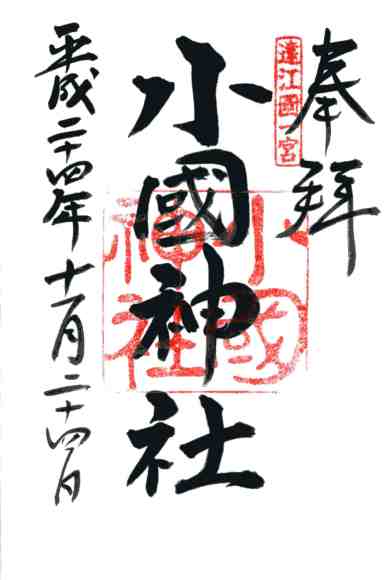 奉拝
遠江國一宮
小國神社
小國神社
平成二十四年十一月二十四日